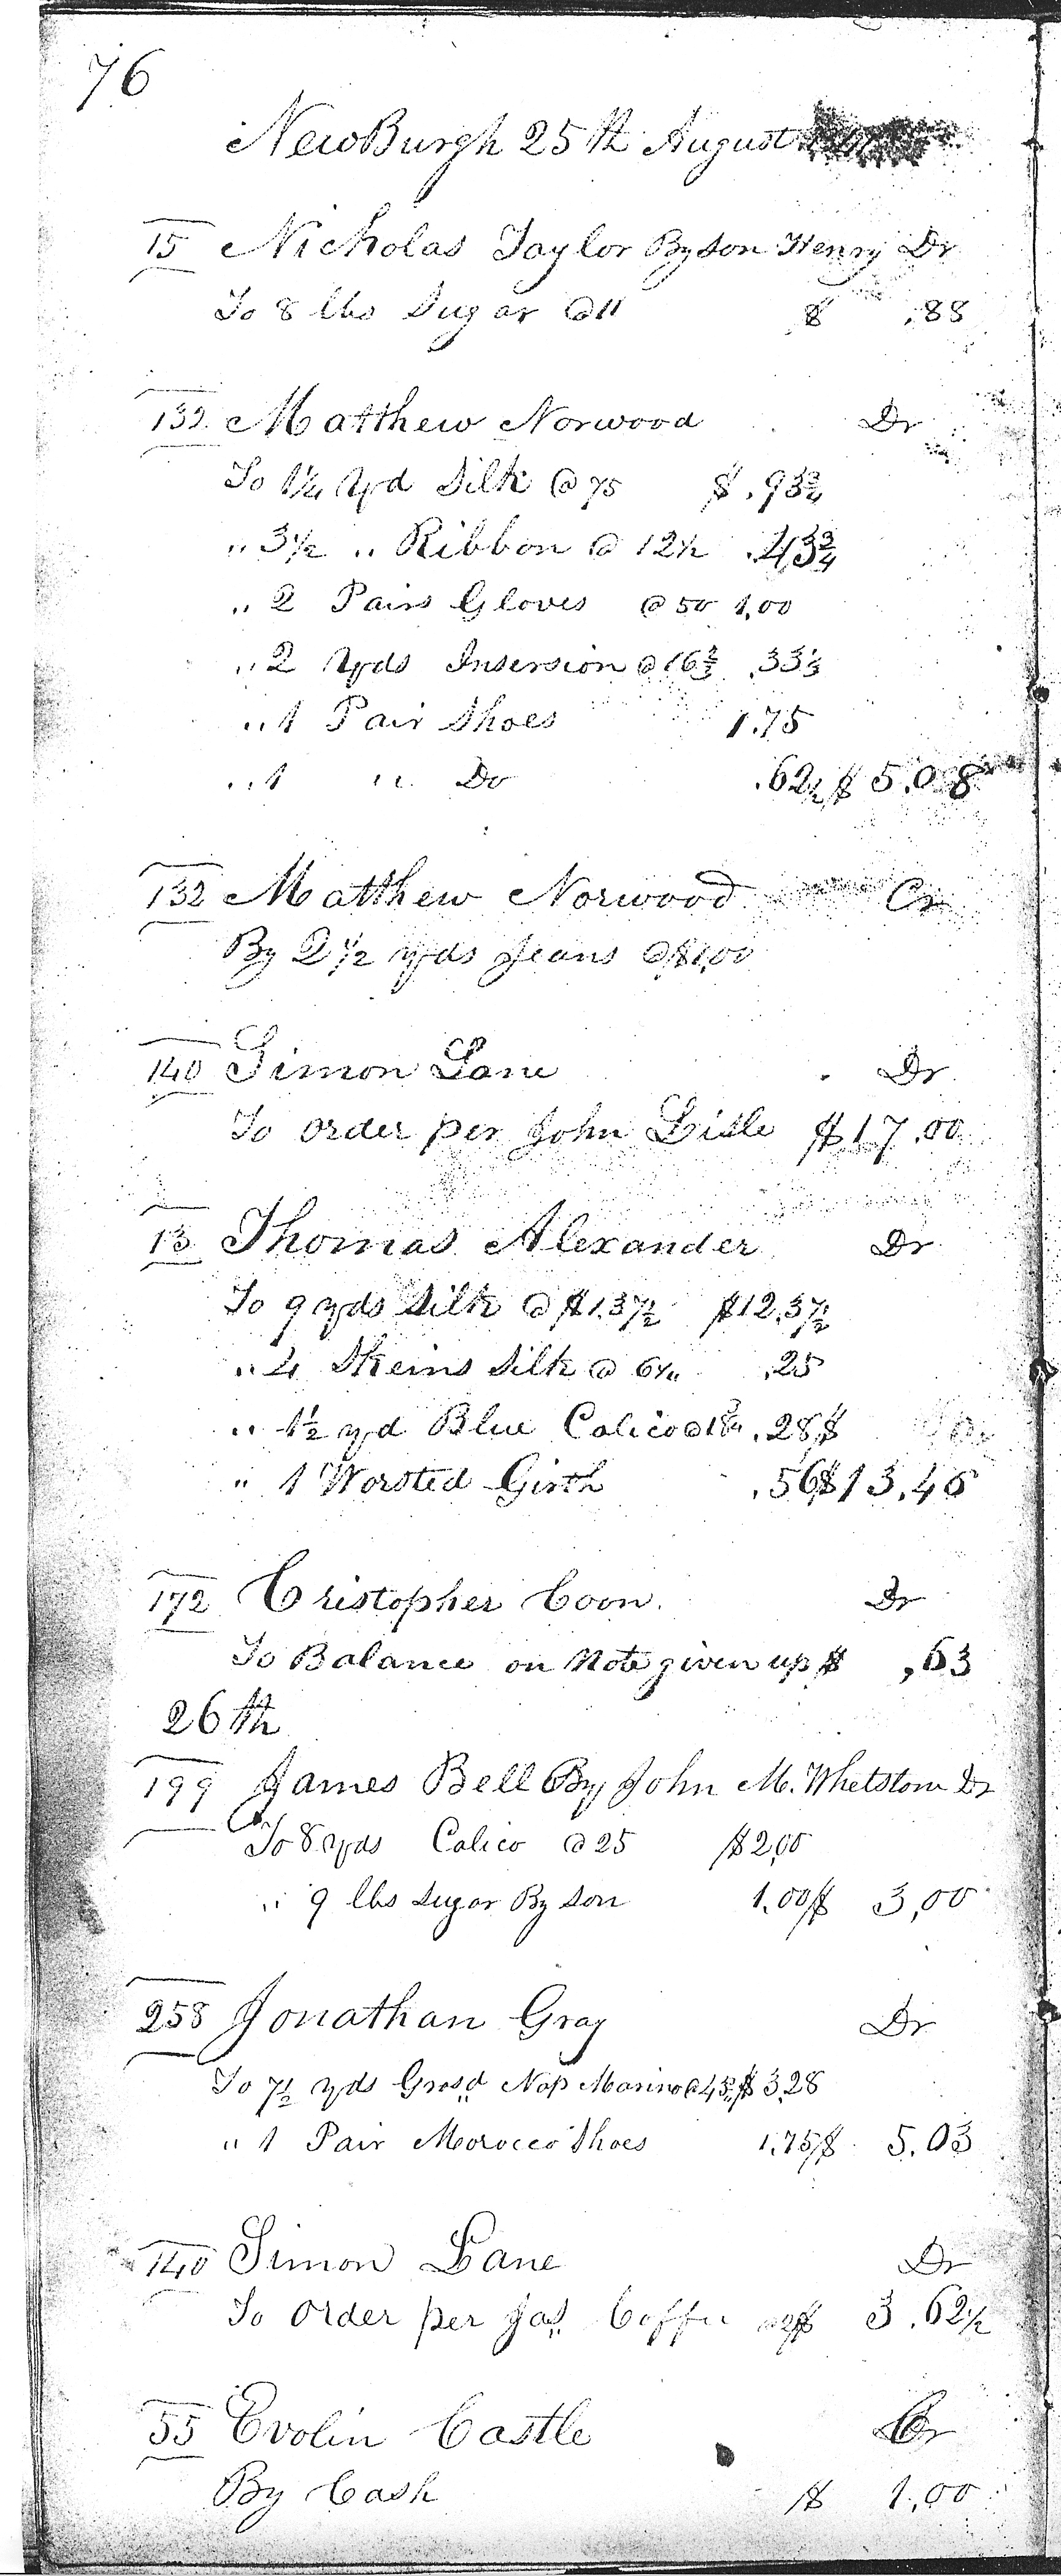 76
NewBurgh 25th August
15 Nicholas Taylor By son Henry Dr
To 8 lbs Sugar @11 $ .88
132 Matthew Norwood Dr
To 1¼ Yd Silk @ 75 $ .93¾
„ 3½ „ Ribbon @ 12½ .43¾
„ 2 Pairs Gloves @ 50 1,00
„ 2 Yds Insersion @ 16⅔ .33⅓
„ 1 Pair Shoes 1.75
„ 1 „ Do .62½ $ 5.08
132 Matthew Norwood Cr
By 2½ yds Jeans @ $1,00
140 Simon Lane Dr
To order per John Lisle $17.00
13 Thomas Alexander Dr
To 9 yds Silk @ $1.37½ $12.37½
„ 4 Skeins Silk @ 6¼ .25
„ 1½ yd Blue Calico @ 18¾ .28 $
„ 1 Worsted Girth .56 $13.46
172 Cristopher Coon Dr
To Balance on Note given up $ ,63
26th
199 James Bell By John M. Whetstone Dr
To 8 yds Calico @ 25 $2,00
„ 9 lbs Sugar By Son 1.00 $ 3,00
258 Jonathan Gray Dr
To 7½ yds Grosd Nap Marino @ 43¾ $3.28
„ 1 Pair Morocco Shoes 1.75 $ 5.03
140 Simon Lane Dr
To order per Jas Coffee $ 3.62½
55 Evolin Castle Cr
By Cash $ 1,00